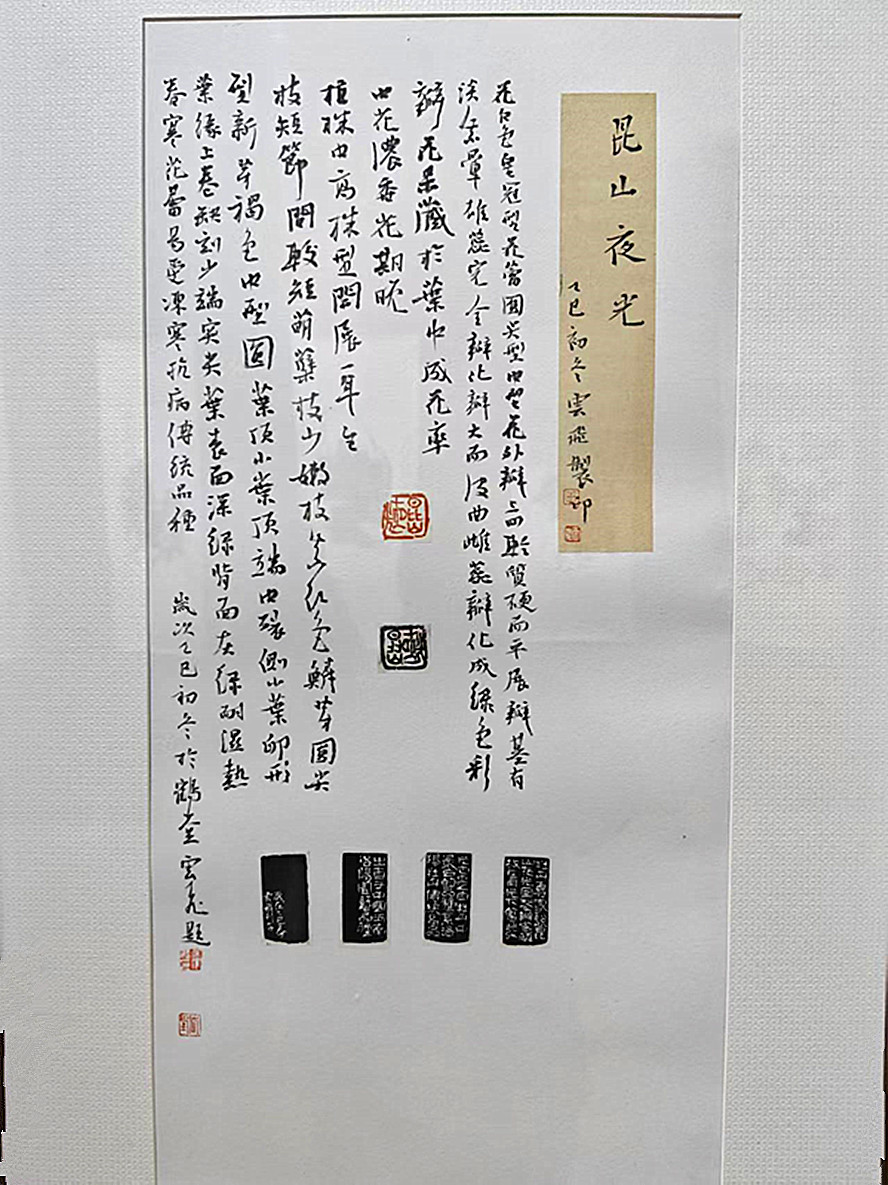 昆山夜光
乙巳初冬雲飛製印
花白色皇冠型花蕾圓尖型中型花外瓣二輪質硬而平展瓣基有
淡紫暈雄蕊完全瓣化瓣大而皮曲雌蕊瓣化成綠色彩
瓣花朵藏於葉中成花率
中花濃香花期晚
植株中高株型開展一年生
枝短節間較短萌蘖枝少嫩枝紫红色鱗芽圓尖
型新芽褐色中型圆葉頂小葉頂端中裂側小葉卵形
葉緣上卷缺刻少端突尖葉表面深綠背面灰綠耐濕熱
春寒花蕾易受凍寒抗病傳統品種
歲次乙巳初冬於鶴壹雲飛題